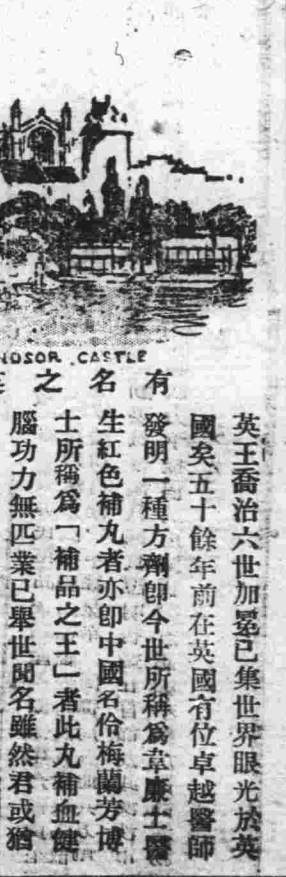 NDSOR CASTLE
有名之
英王喬治六世加冕已集世界眼光於英
國矣五十餘年前在英國有位卓越醫師
發明一種方劑卽今世所稱爲韋廉士醫
生紅色補丸者亦卽中國名伶梅蘭芳博
士所稱爲「補品之王」者此丸補血健
腦功力無匹業已舉世聞名雖然君或猶